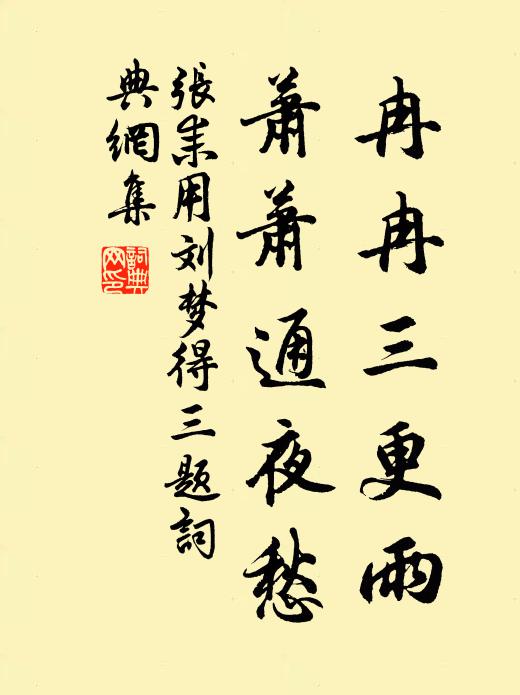 冉冉三更雨
萧萧通夜愁
張耒用刘梦得三题詞
典網集
詞典
网印